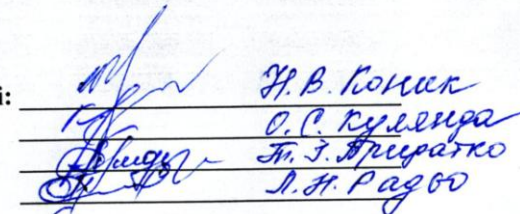 і:
Н.В. Коник
О.С. Кулянда
Т.З. Придатко
Л.Н. Радьо